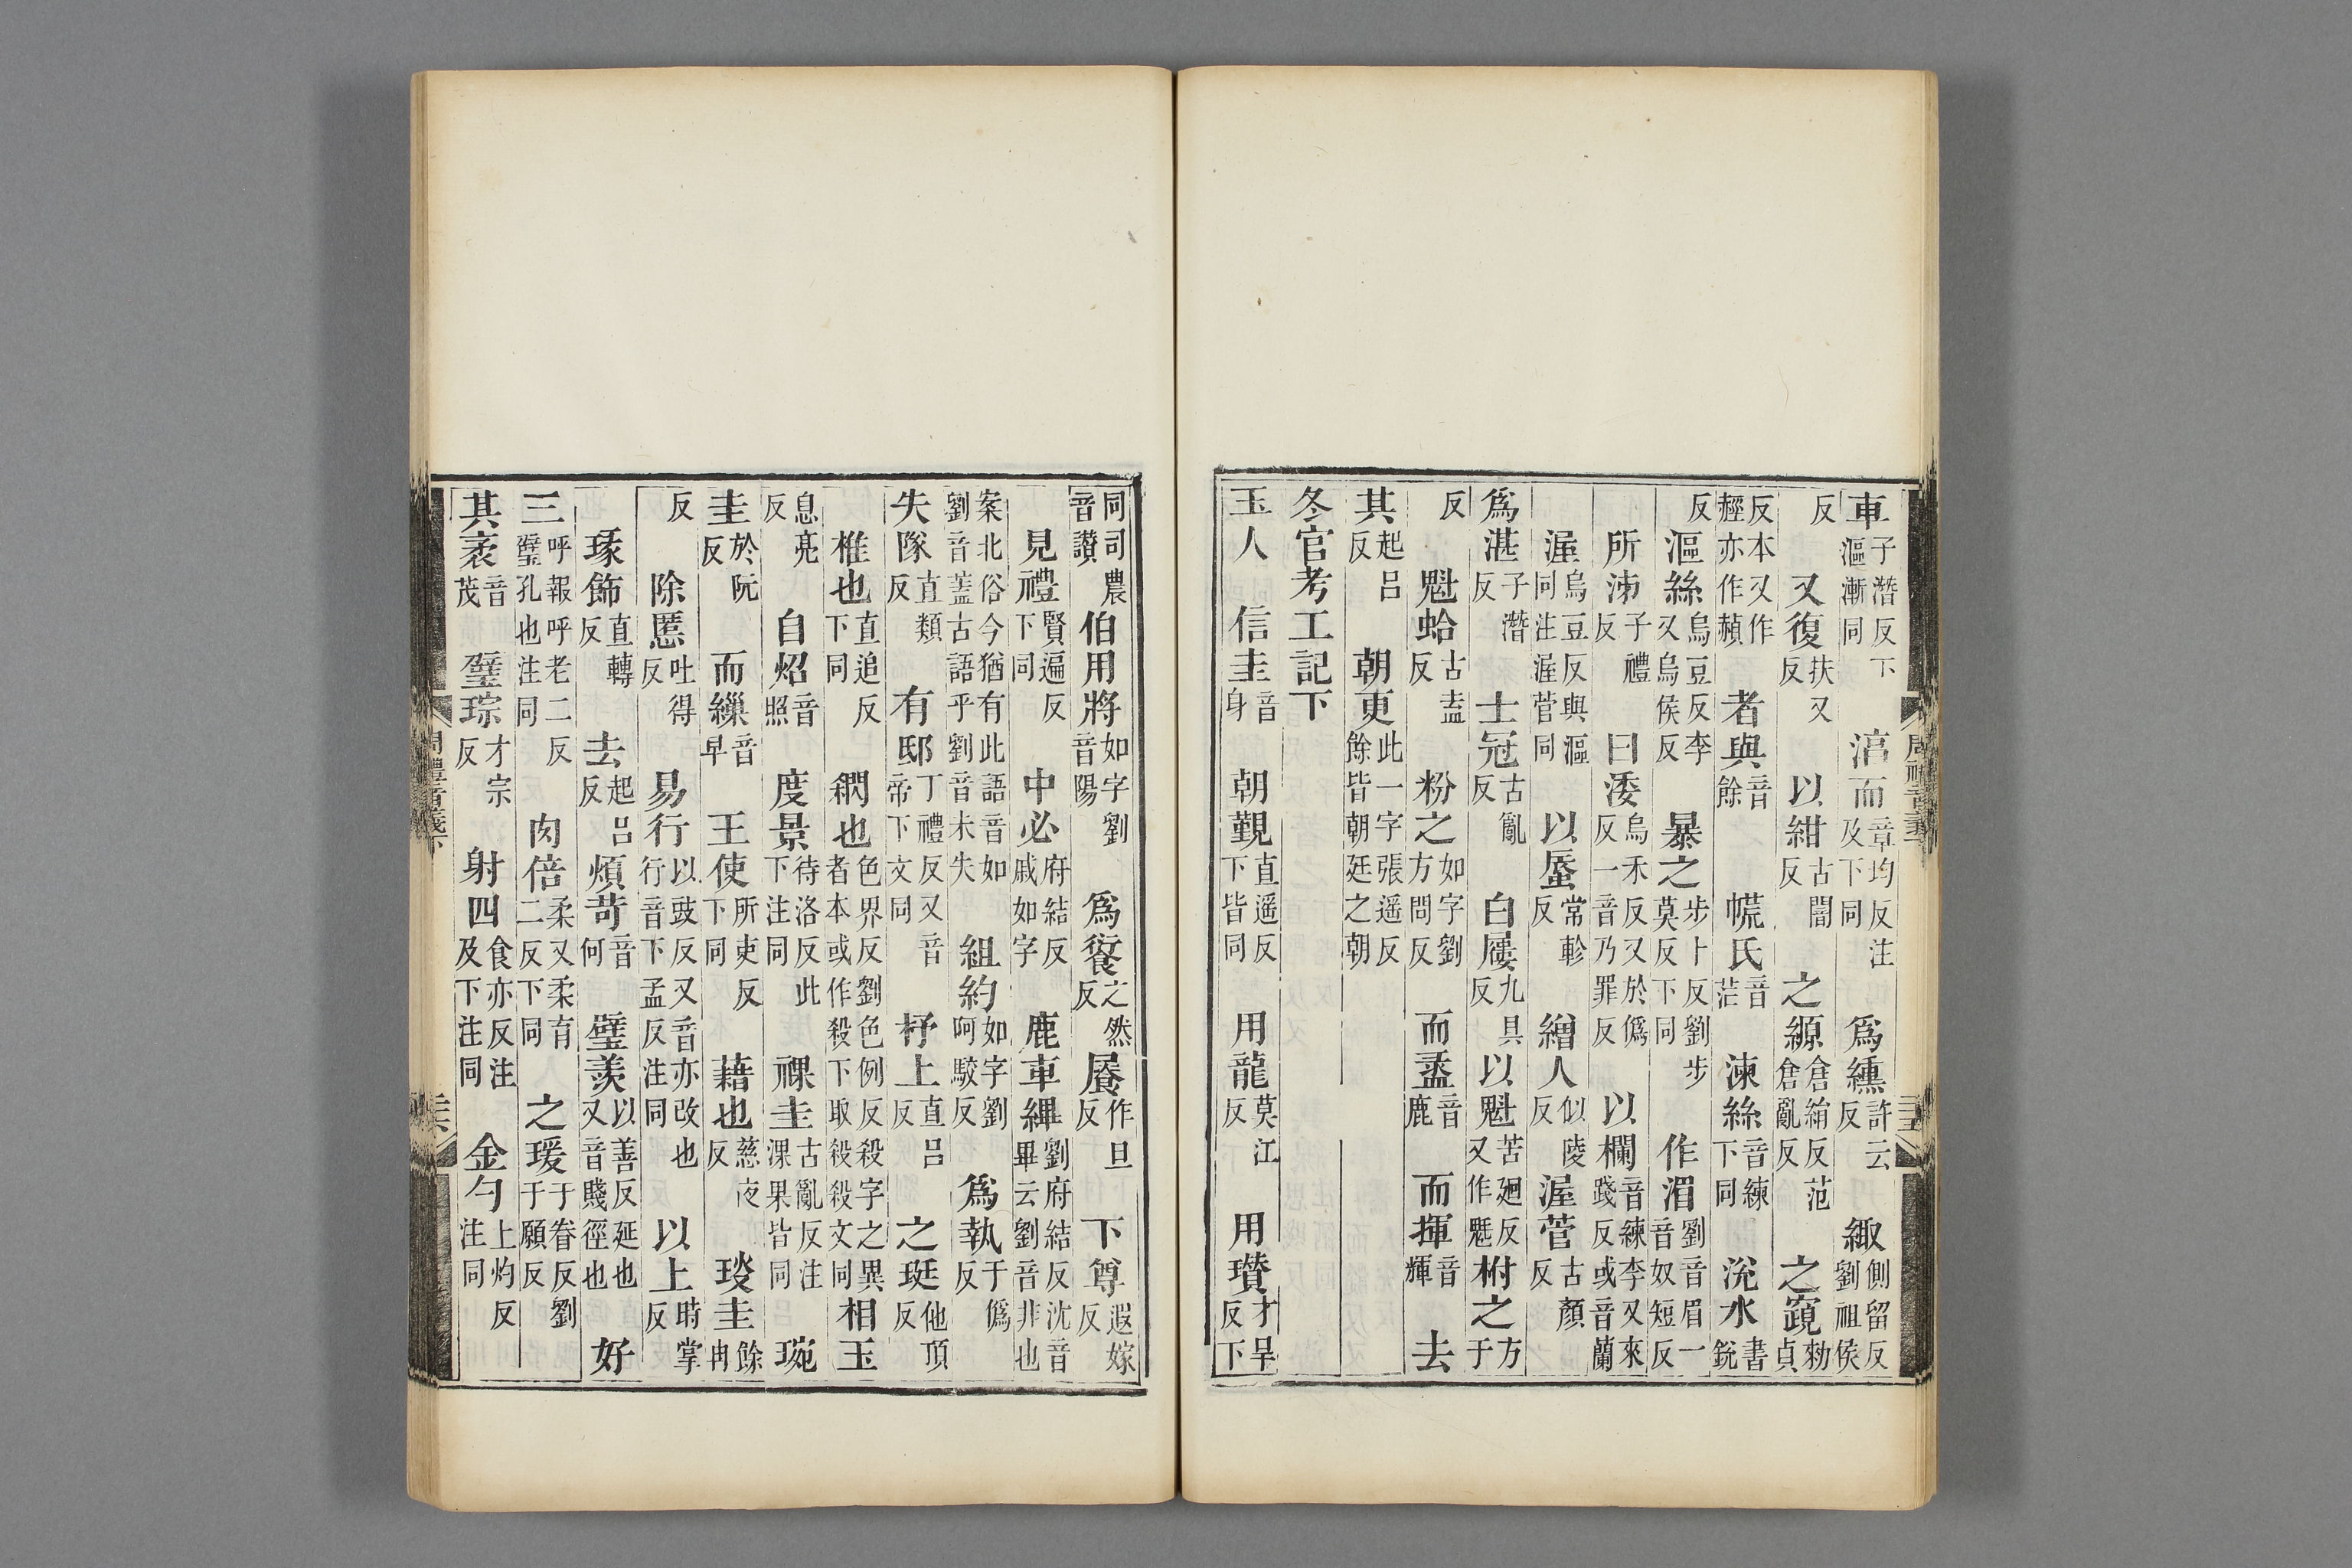 車子潛反下漚漸同 淳而章均反注及下同 爲纁許云反 緅側留反劉祖侯
反 又復扶又反 以紺古闇反 之縓倉絹反范倉亂反 之䞓勑貞
反本又作䞓亦作赬 者與音餘 㡛氏音茫 湅絲音練下同 涗水書銳
反 漚絲烏豆反李又烏侯反 暴之步卜反劉步莫反下同 作湄劉音眉一音奴短反
所沛子禮反 曰涹烏禾反又於僞反一音乃罪反 以欄音練李又來踐反或音蘭
渥烏豆反與漚同注渥菅同 以蜃常軫反 繒人似陵反 渥菅古顏反
爲湛子潛反 士冠古亂反 白屨九具反 以魁苦廻反又作魁 柎之方于
反 魁蛤古盍反 粉之如字劉方問反 而盝音鹿 而揮音輝 去
其起呂反 朝更此一字張遥反餘皆朝廷之朝
冬官考工記下
玉人 信圭音身 朝覲直遥反下皆同 用龍莫江反 用瓚才旱反下
同司農音讚 伯用將如字劉音陽 爲餐之然反 屬作旦反 下尊遐嫁反
見禮賢遍反下同 中必府結反戚如字 鹿車縪劉府結反沈音畢云劉音非也
案北俗今猶有此語音如劉音蓋古語乎劉音未失 組約如字劉呵駮反 爲執于僞反
失隊直類反 有邸丁禮反又音帝下文同 杼上直呂反 之珽他頂反
椎也直追反下同 䦿也色界反劉色例反殺字之異者本或作殺下取殺殺文同 相玉
息亮反 自炤音照 度景待洛反此下注同 祼圭古亂反注淉果皆同 琬
圭於阮反 而繅音早 王使所吏反下同 藉也慈夜反 琰圭餘冉
反 除慝吐得反 易行以豉反又音亦改也行音下孟反注同 以上時掌反
瑑飾直轉反 去起呂反 煩苛音何 璧羨以善反延也又音賤徑也 好
三呼報呼老二反璧孔也注同 肉倍柔又柔有二反下同 之瑗于眷反劉于願反
其袤音茂 璧琮才宗反 射四食亦反注及下注同 金勺上灼反注同
周禮音義下